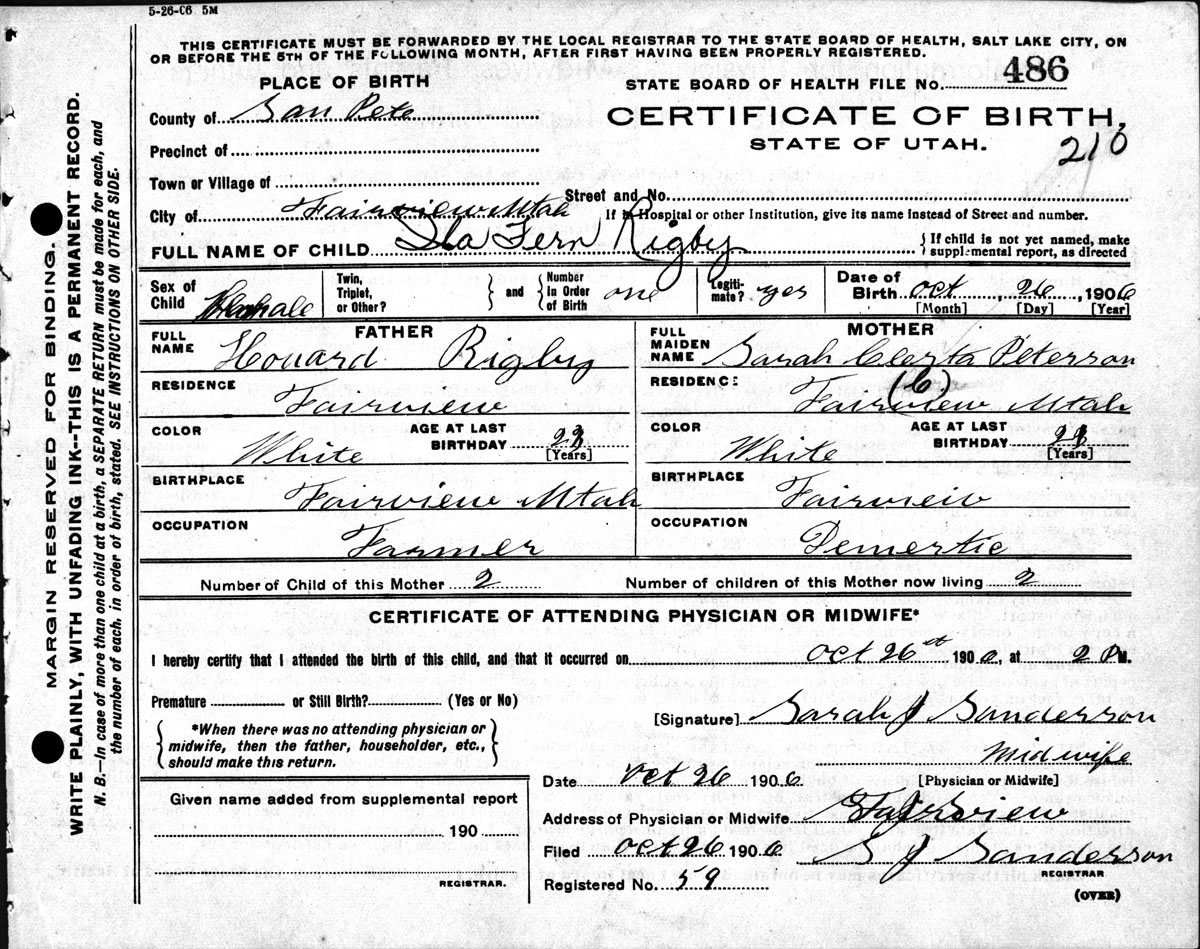 5-26-06 5M
THIS CERTIFICATE MUST BE FORWARDED BY THE LOCAL REGISTRAR TO THE STATE BOARD OF HEALTH, SALT LAKE CITY, ON
OR BEFORE THE 5TH OF THE FOLLOWING MONTH, AFTER FIRST HAVING BEEN PROPERLY REGISTERED.
PLACE OF BIRTH
STATE BOARD OF HEALTH FILE No. 486
County of San Pete
CERTIFICATE OF BIRTH,
STATE OF UTAH.
210
Precinct of
Town or Village of
Street and No.
City of Fairview Utah
If in Hospital or other Institution, give its name instead of Street and number.
FULL NAME OF CHILD Ila Fern Rigby
If child is not yet named, make
supplemental report, as directed
Sex of Child
Twin, Triplet, or Other? and Number In Order of Birth one
Legiti-mate? yes
Date of Birth Oct, 26, 1906
[Month] [Day] [Year]
FATHER
FULL NAME Houard Rigby
MOTHER
FULL MAIDEN NAME Sarah Clesta Peterson
RESIDENCE Fairview
RESIDENCE Fairview Utah
(C)
COLOR White
AGE AT LAST BIRTHDAY
[Years]
COLOR White
AGE AT LAST BIRTHDAY
[Years]
BIRTHPLACE Fairview Utah
BIRTHPLACE Fairview
OCCUPATION Farmer
OCCUPATION Demertic
Number of Child of this Mother 2
Number of children of this Mother now living 2
CERTIFICATE OF ATTENDING PHYSICIAN OR MIDWIFE*
I hereby certify that I attended the birth of this child, and that it occurred on Oct 26th 1906, at 2 PM.
Premature or Still Birth? (Yes or No)
*When there was no attending physician or
midwife, then the father, householder, etc.,
should make this return.
[Signature] Sarah J Sanderson
Midwife
[Physician or Midwife]
Date Oct 26 1906
Given name added from supplemental report
190
REGISTRAR.
Address of Physician or Midwife Fairview
Filed Oct 26 1906
S J Sanderson
REGISTRAR
Registered No. 59
(OVER)
MARGIN RESERVED FOR BINDING.
WRITE PLAINLY, WITH UNFADING INK--THIS IS A PERMANENT RECORD.
N. B.—In case of more than one child at a birth, a SEPARATE RETURN must be made for each, and
the number of each, in order of birth, stated. SEE INSTRUCTIONS ON OTHER SIDE.